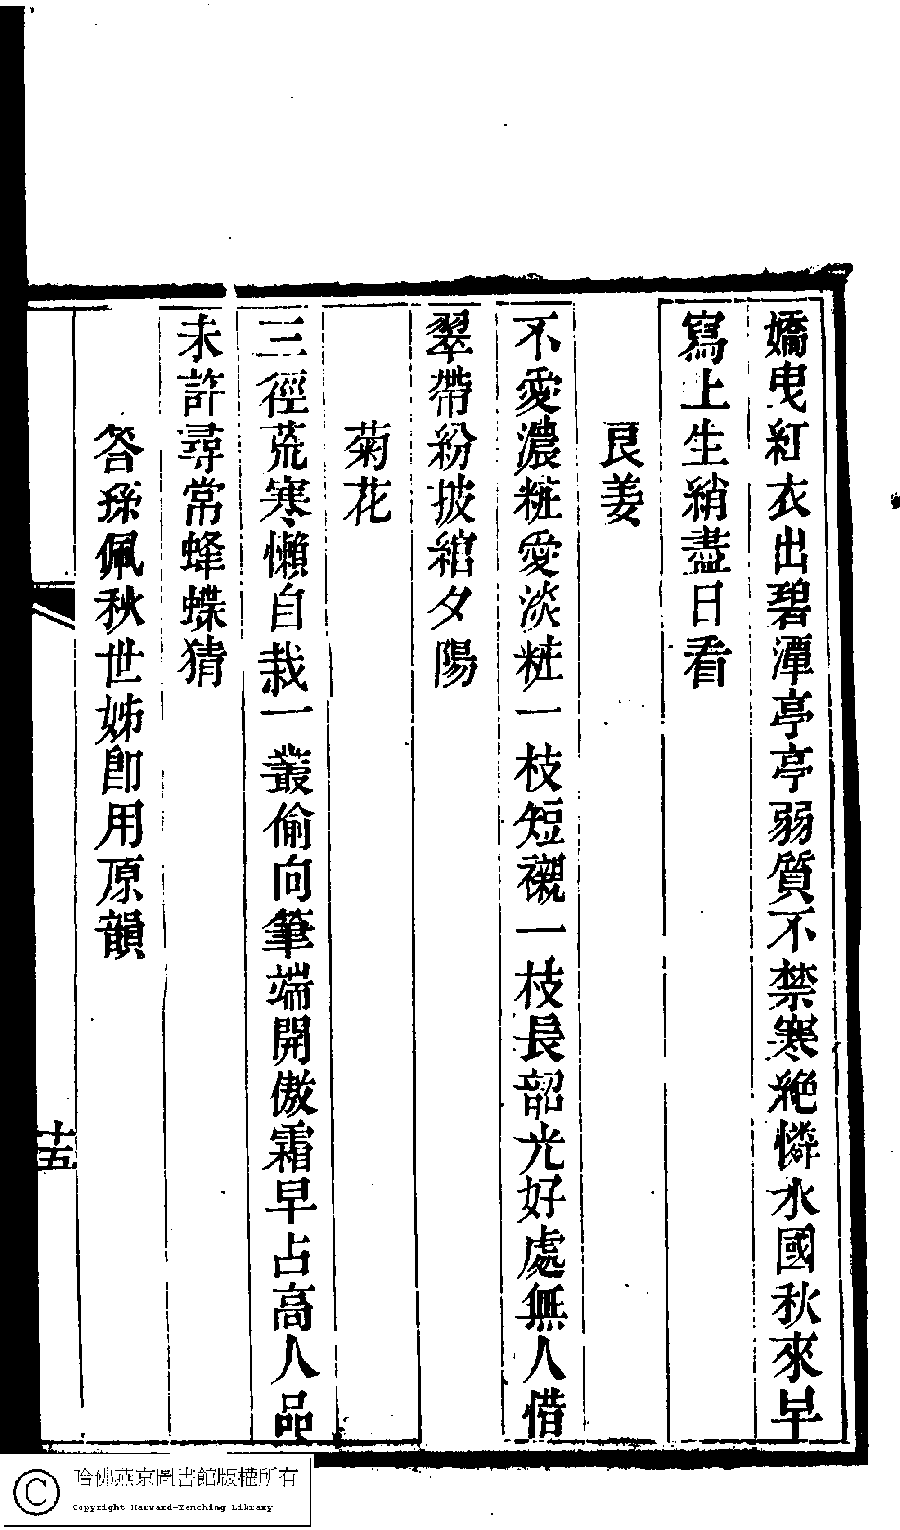 嬌曳紅衣出碧潭亭亭弱質不禁寒絶憐水國秋來早
寫上生綃盡日看
艮姜
不愛濃粧愛淡粧一枝短襯一枝長韶光好處無人借
翠帶紛披綰夕陽
菊花
三徑荒寒懶自栽一叢偷向筆端開傲霜早占高人品
未許尋常蜂蝶猜
答孫佩秋世姊卽用原韻
十五
哈佛燕京圖書館版權所有
Copyright Harvard-Yenching Library